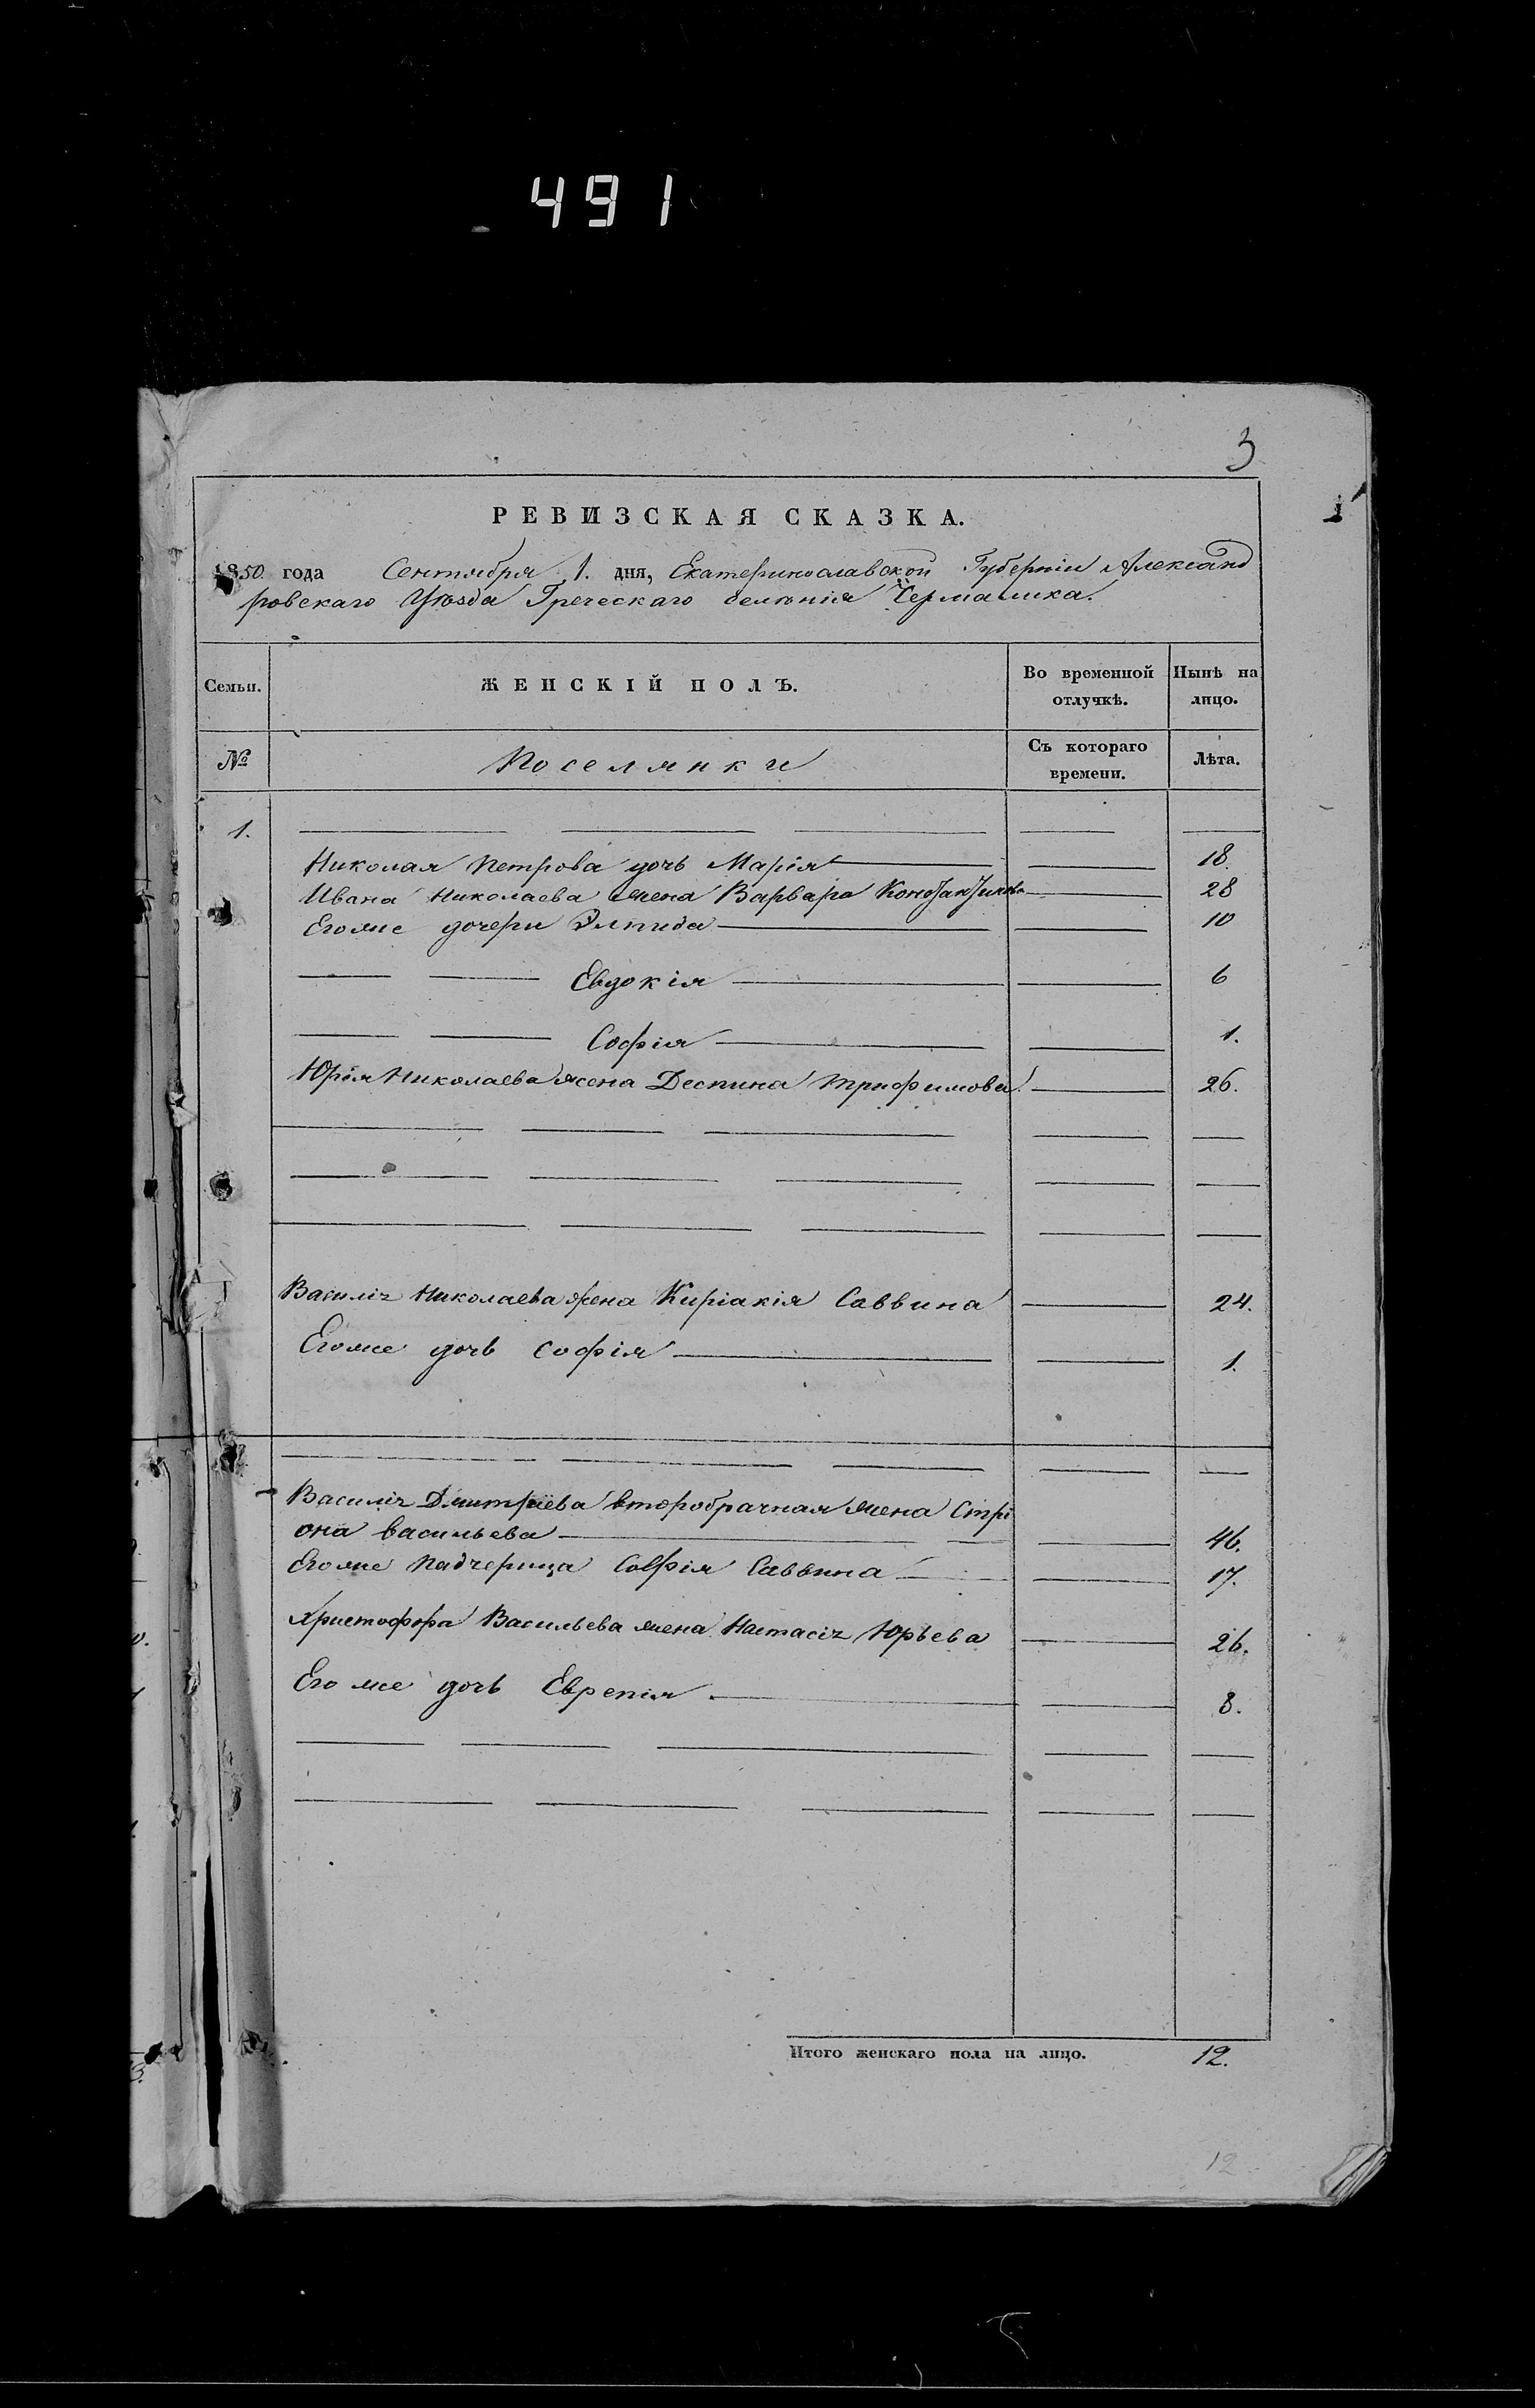 491
3
1
РЕВИЗСКАЯ СКАЗКА.
1850 года Сентября 1. дня, Екатеринославской Губерніи Александ
ровскаго Уѣзда Греческаго селенія Чермалика.
Семьи. ЖЕНСКІЙ ПОЛЪ. Во временной отлучкѣ. Нынѣ на лицо.
№ Поселянки Съ котораго времени. Лѣта.
1.
Николая Петрова дочь Марія 18.
Ивана Николаева жена Варвара Константинова 28
Егоже дочери Элпида 10
Евдокія 6
Софія 1.
Юрія Николаева жена Деспина Трифимова 26.
Василія Николаева жена Киріакія Саввина 24.
Егоже дочь Софія 1.
Василія Дмитріева второбрачная жена Стрі
она Васильева 46.
Егоже падчерица Софія Саввина 17.
Христофора Васильева жена Настасія Юрьева 26.
Егоже дочь Еврепія 8.
Итого женскаго пола на лицо. 12.
12